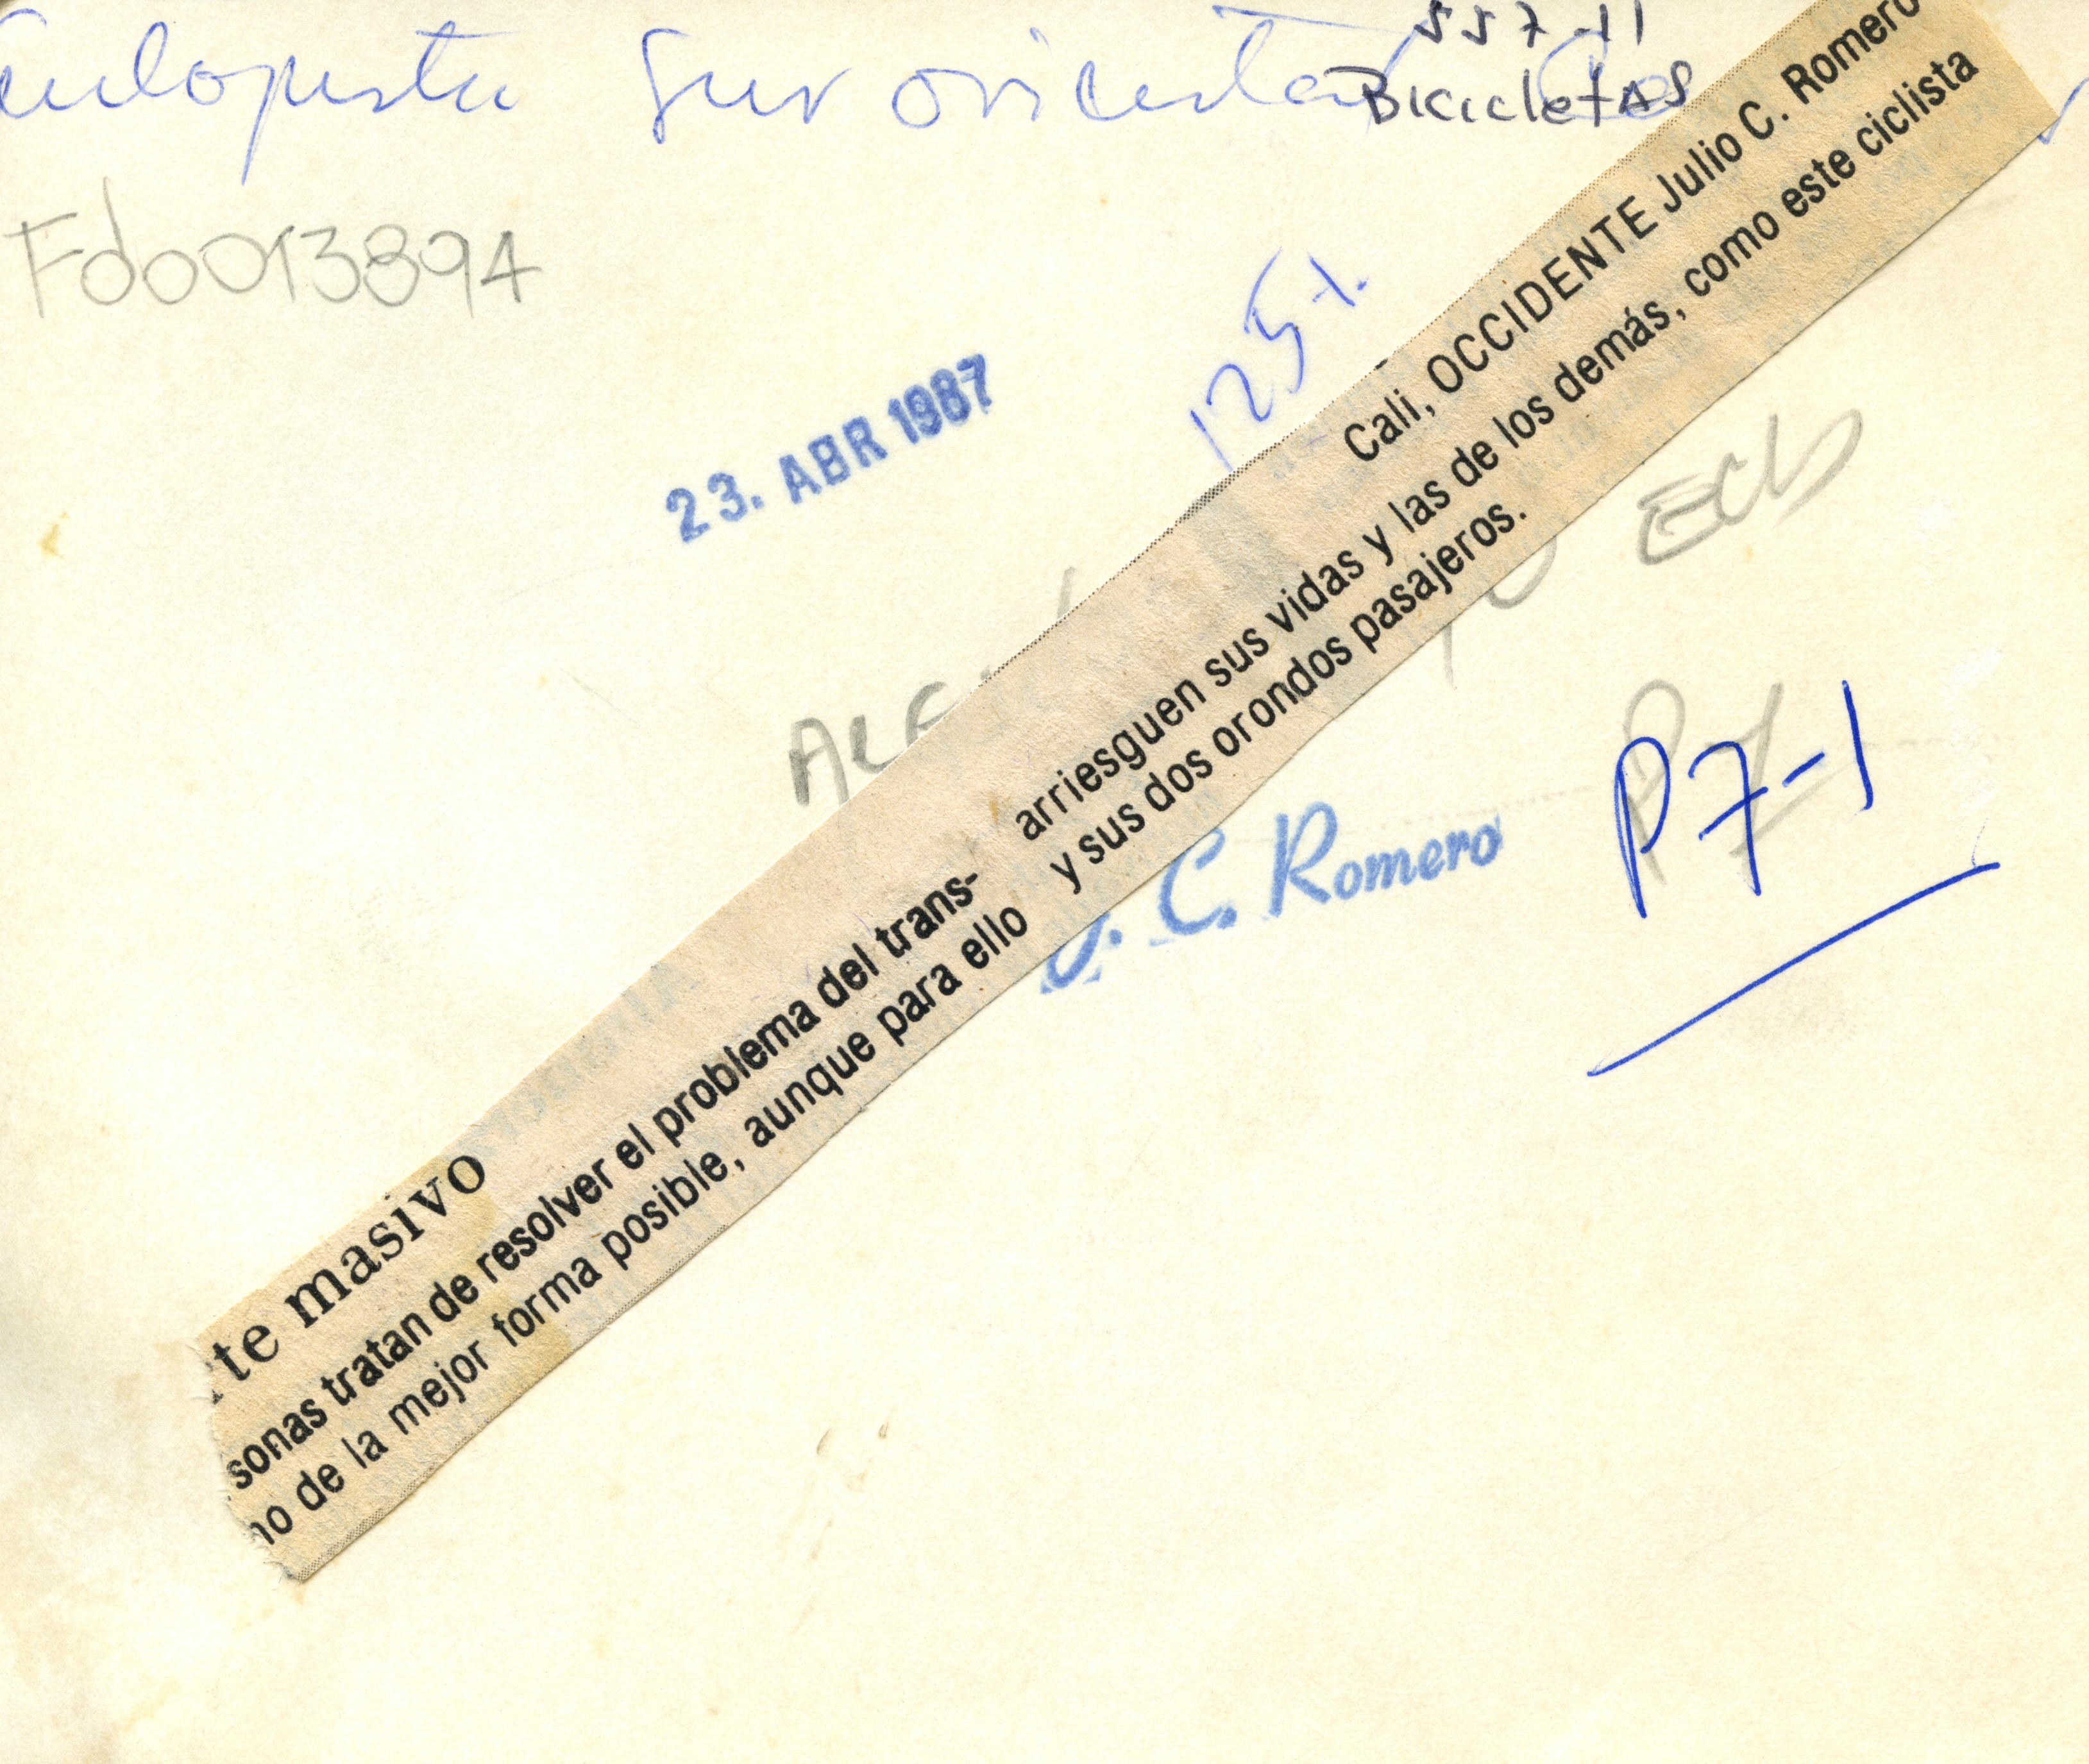 557-11
Autopista Sur oriental
BicicletAS
Fdo0013894
125%
23. ABR 1987
Cali, OCCIDENTE Julio C. Romero
rte masivo
sonas tratan de resolver el problema del trans-
no de la mejor forma posible, aunque para ello
arriesguen sus vidas y las de los demás, como este ciclista
y sus dos orondos pasajeros.
J. C. Romero
P7
P7-1